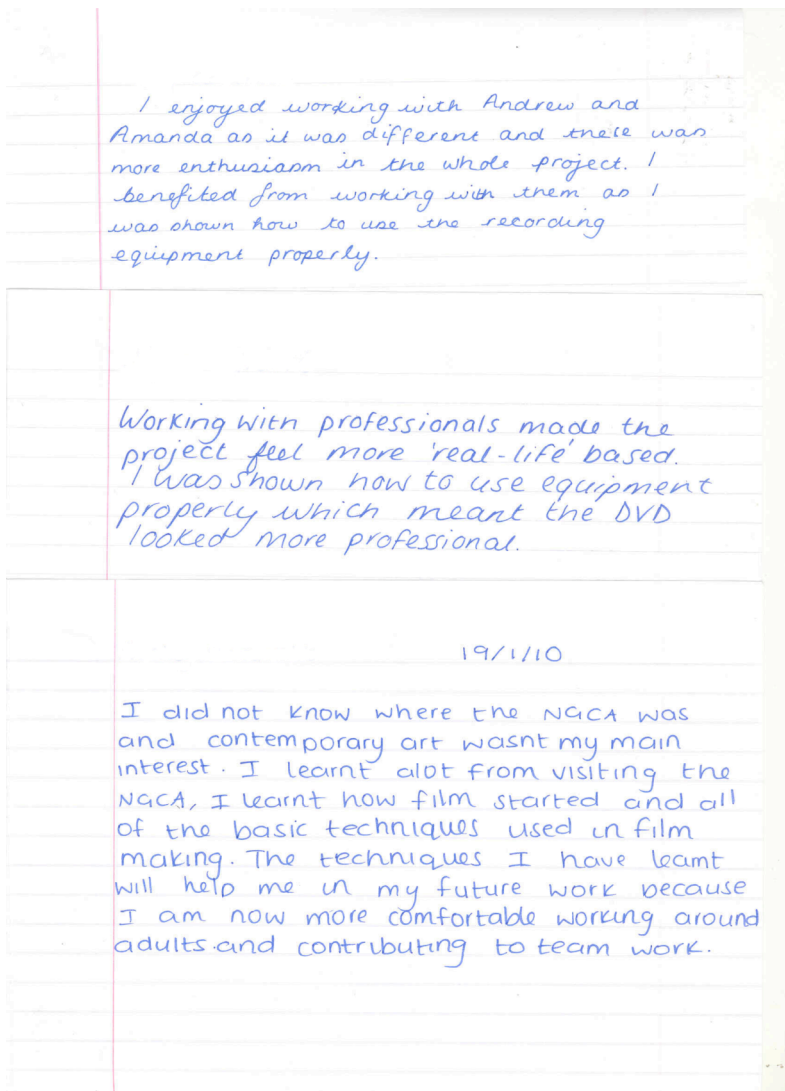 I enjoyed working with Andrew and
Amanda as it was different and there was
more enthusiasm in the whole project. I
benefited from working with them as I
was shown how to use the recording
equipment properly.
Working with professionals made the
project feel more 'real-life' based.
I was shown how to use equipment
properly which meant the DVD
looked more professional.
19/1/10
I did not know where the NGCA was
and contemporary art wasnt my main
interest. I learnt alot from visiting the
NGCA, I learnt how film started and all
of the basic techniques used in film
making. The techniques I have learnt
will help me in my future work because
I am now more comfortable working around
adults.and contributing to team work.